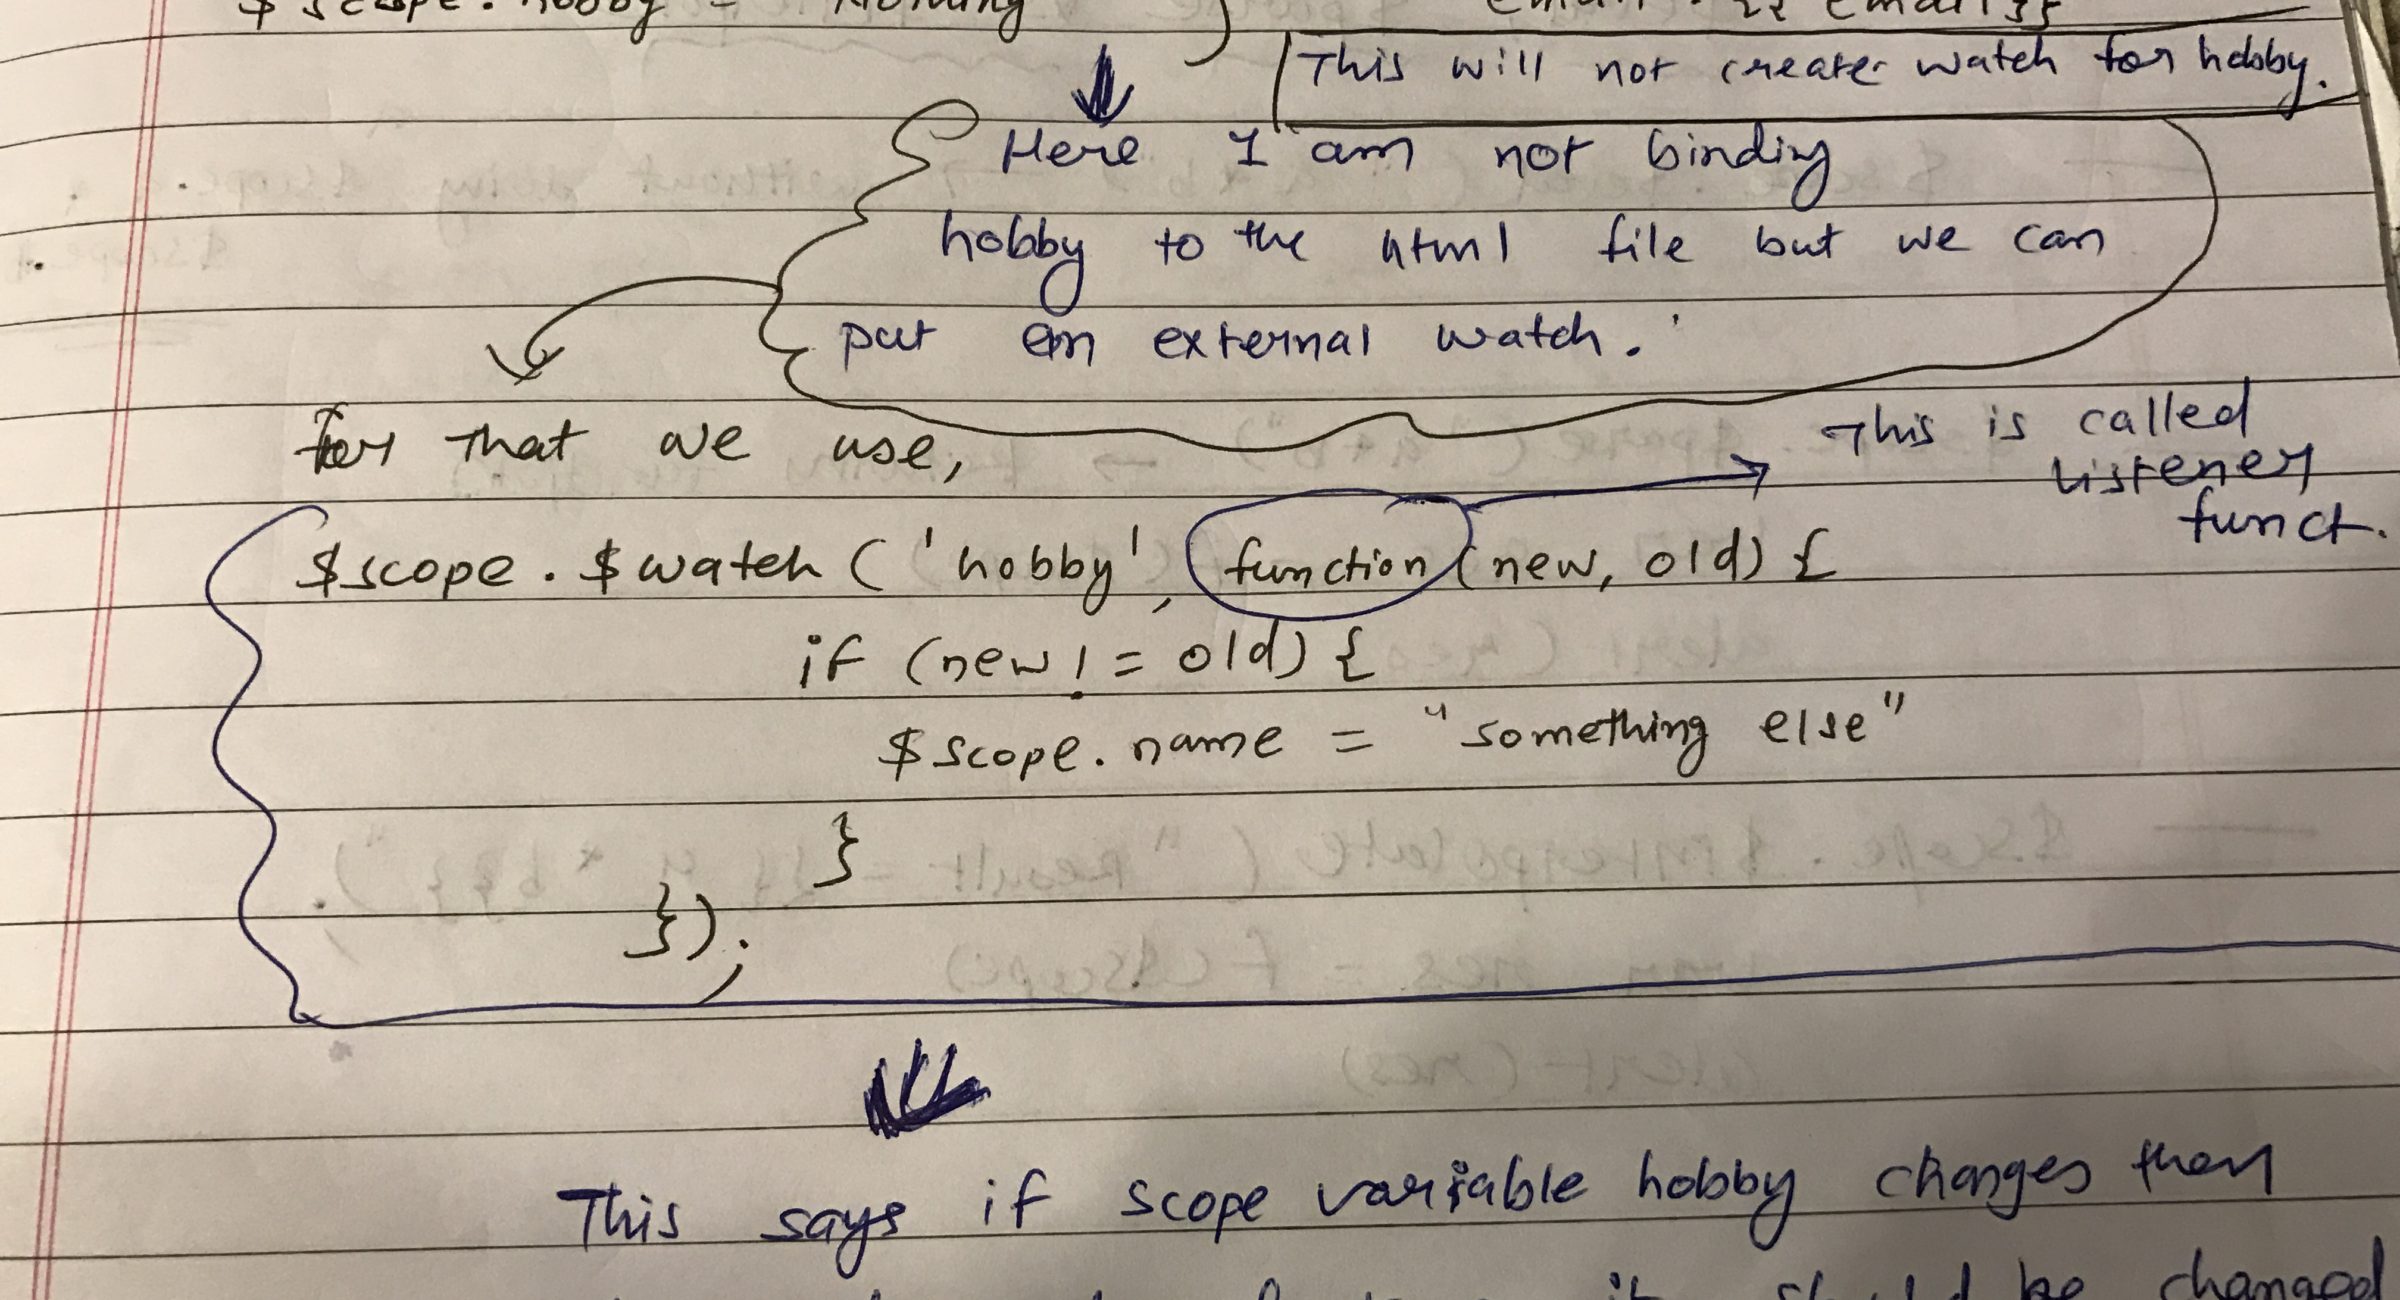 $scope.hobby = "
email : {{ email }}
This will not create watch for hobby.
Here I am not binding
hobby to the html file but we can
put an external watch.
for that we use,
This is called
listener
funct.
$scope.$watch('hobby', function(new, old) {
if (new != old) {
$scope.name = "something else"
}
});
This says if scope variable hobby changes then
it should be changed